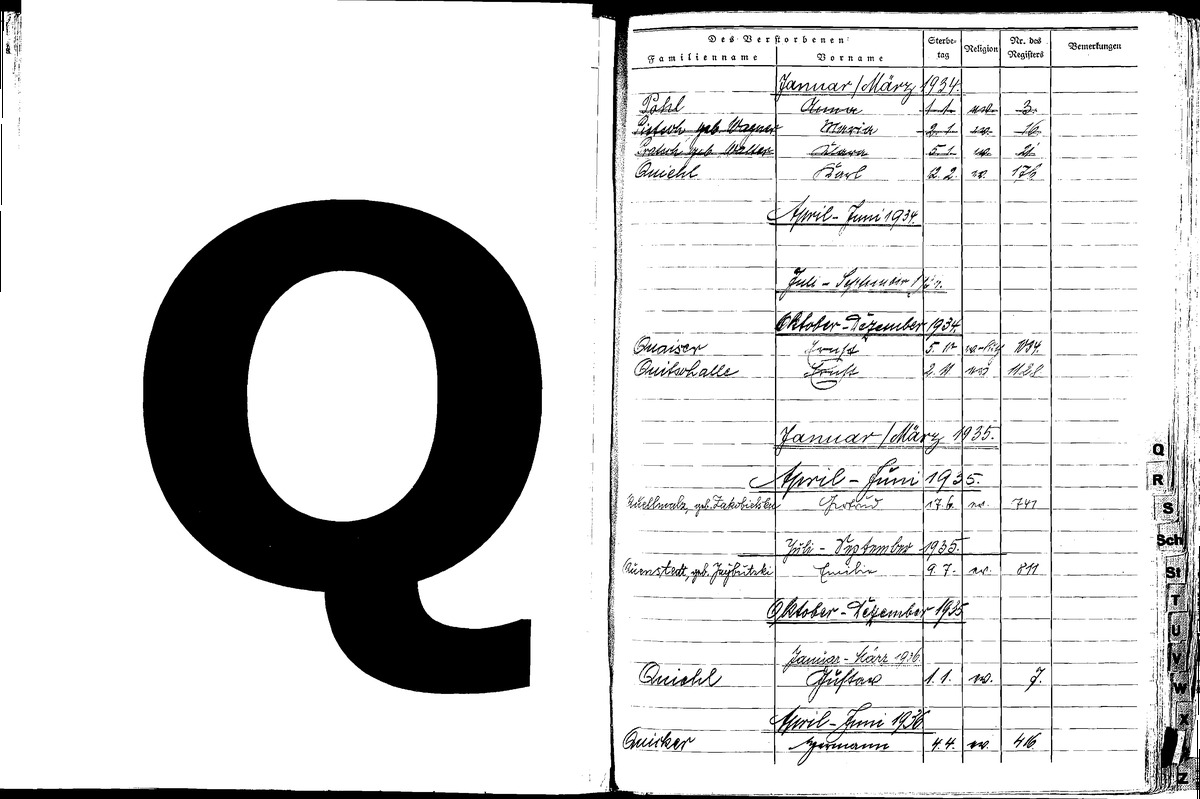 Q
Des Verstorbenen
Familienname Vorname Sterbetag Religion Nr. des Registers Bemerkungen
Januar/März 1934.
Pohl Anna 1.1. ev. 3.
Pietsch geb. Wagner Maria 2.1. ev. 16.
geb. Walter Klara 5.1. ev. 21
Quiehl Karl 12.2. ev. 176
April-Juni 1934.
Juli - September
Oktober-Dezember 1934.
Quaiser Ernst
Quitschalle Ernst 2.11 1128
Januar/März 1935.
April - Juni 1935.
geb. Gertrud 17.6. ev. 741
Juli - September 1935.
Quenstedt, geb. Emilie 9.7. ev. 811
Oktober-Dezember 1935
Januar-März 1936.
Quiehl Gustav 1.1. ev. 7.
April-Juni 1936
Quicker Hermann 4.4. ev. 416
Q
R
S
Sch
St
T
U
V
W
X
Z